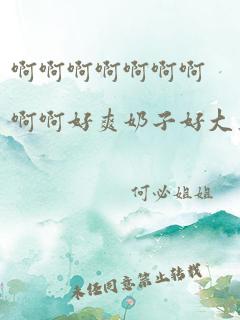 啊啊啊啊啊啊啊
啊啊好爽奶子好大
何必姐姐
未经同意禁止转载